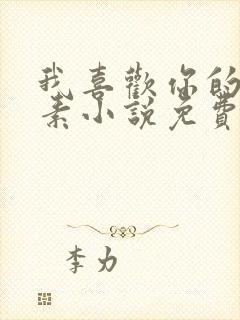 我喜歡你的
素小說免費
李力